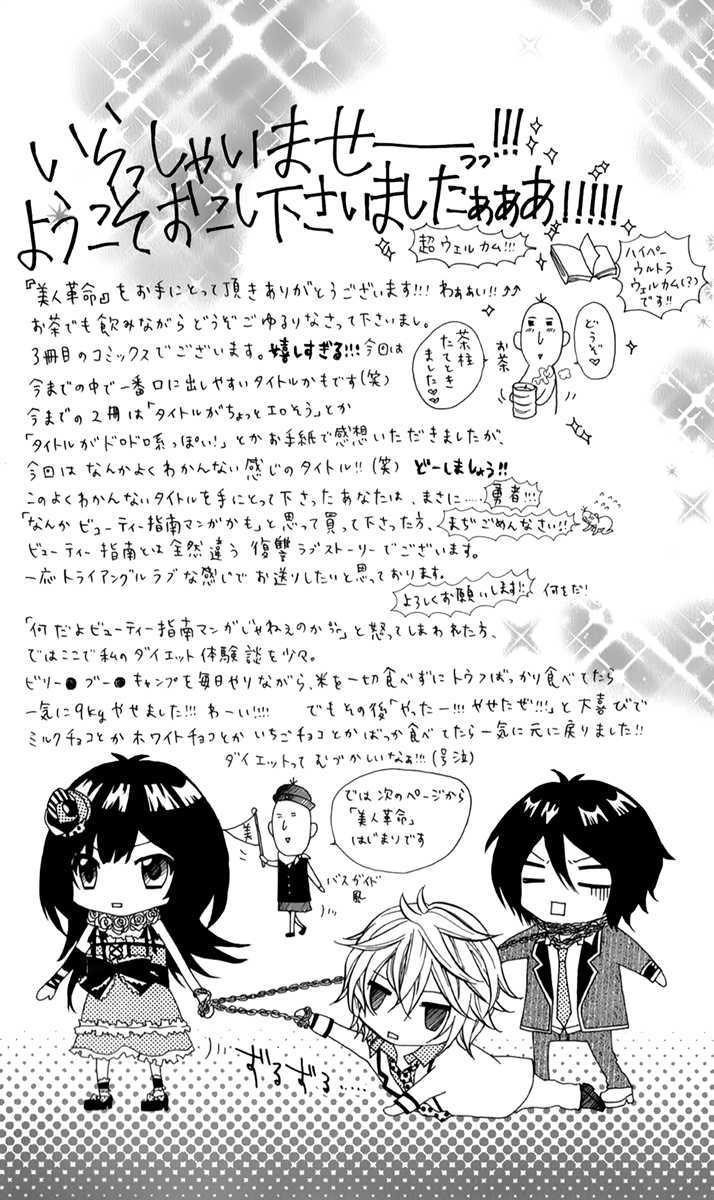 いらっしゃいませーーーっっ!!!
ようこそおこし下さいましたぁぁあ!!!!!
超ウェルカム!!!
ハイパー
ウルトラ
ウェルカム(?)
です!!
『美人革命』をお手にとって頂きありがとうございます!!! わぁぁい!!
お茶でも飲みながらどうぞごゆるりなさって下さいまし。
3冊目のコミックスでございます。嬉しすぎる!!! 今回は
今までの中で一番口に出しやすいタイトルかもです(笑)
茶柱
たてとき
ました♡
お茶
どうぞ♡
今までの2冊は「タイトルがちょっとエロそう」とか
「タイトルがドロドロ系っぽい!」とかお手紙で感想いただきましたが、
今回はなんかよくわかんない感じのタイトル!!(笑) どーしましょう!!
このよくわかんないタイトルを手にとって下さったあなたは、まさに……勇者!!!
「なんかビューティー指南マンガかも」と思って買って下さった方、まぢごめんなさい!!
ビューティー指南とは全然違う復讐ラブストーリーでございます。
一応トライアングルラブな感じでお送りしたいと思っております。
よろしくお願いします!! 何をだ!
「何だよビューティー指南マンガじゃねぇのかよ」と怒ってしまわれた方、
ではここで私のダイエット体験談を少々。
ビリー●ブー●キャンプを毎日やりながら、米を一切食べずにトウフばっかり食べてたら
一気に9kgやせました!!! わーい!!!! でもその後「やったー!!! やせたぜ!!!」と大喜びで
ミルクチョコとかホワイトチョコとかいちごチョコとかばっか食べてたら一気に元に戻りました!!
ダイエットってむづかしいなぁ!!!(号泣)
美
では次のページから
「美人革命」
はじまりです
バスガイド
風
ずるずる……